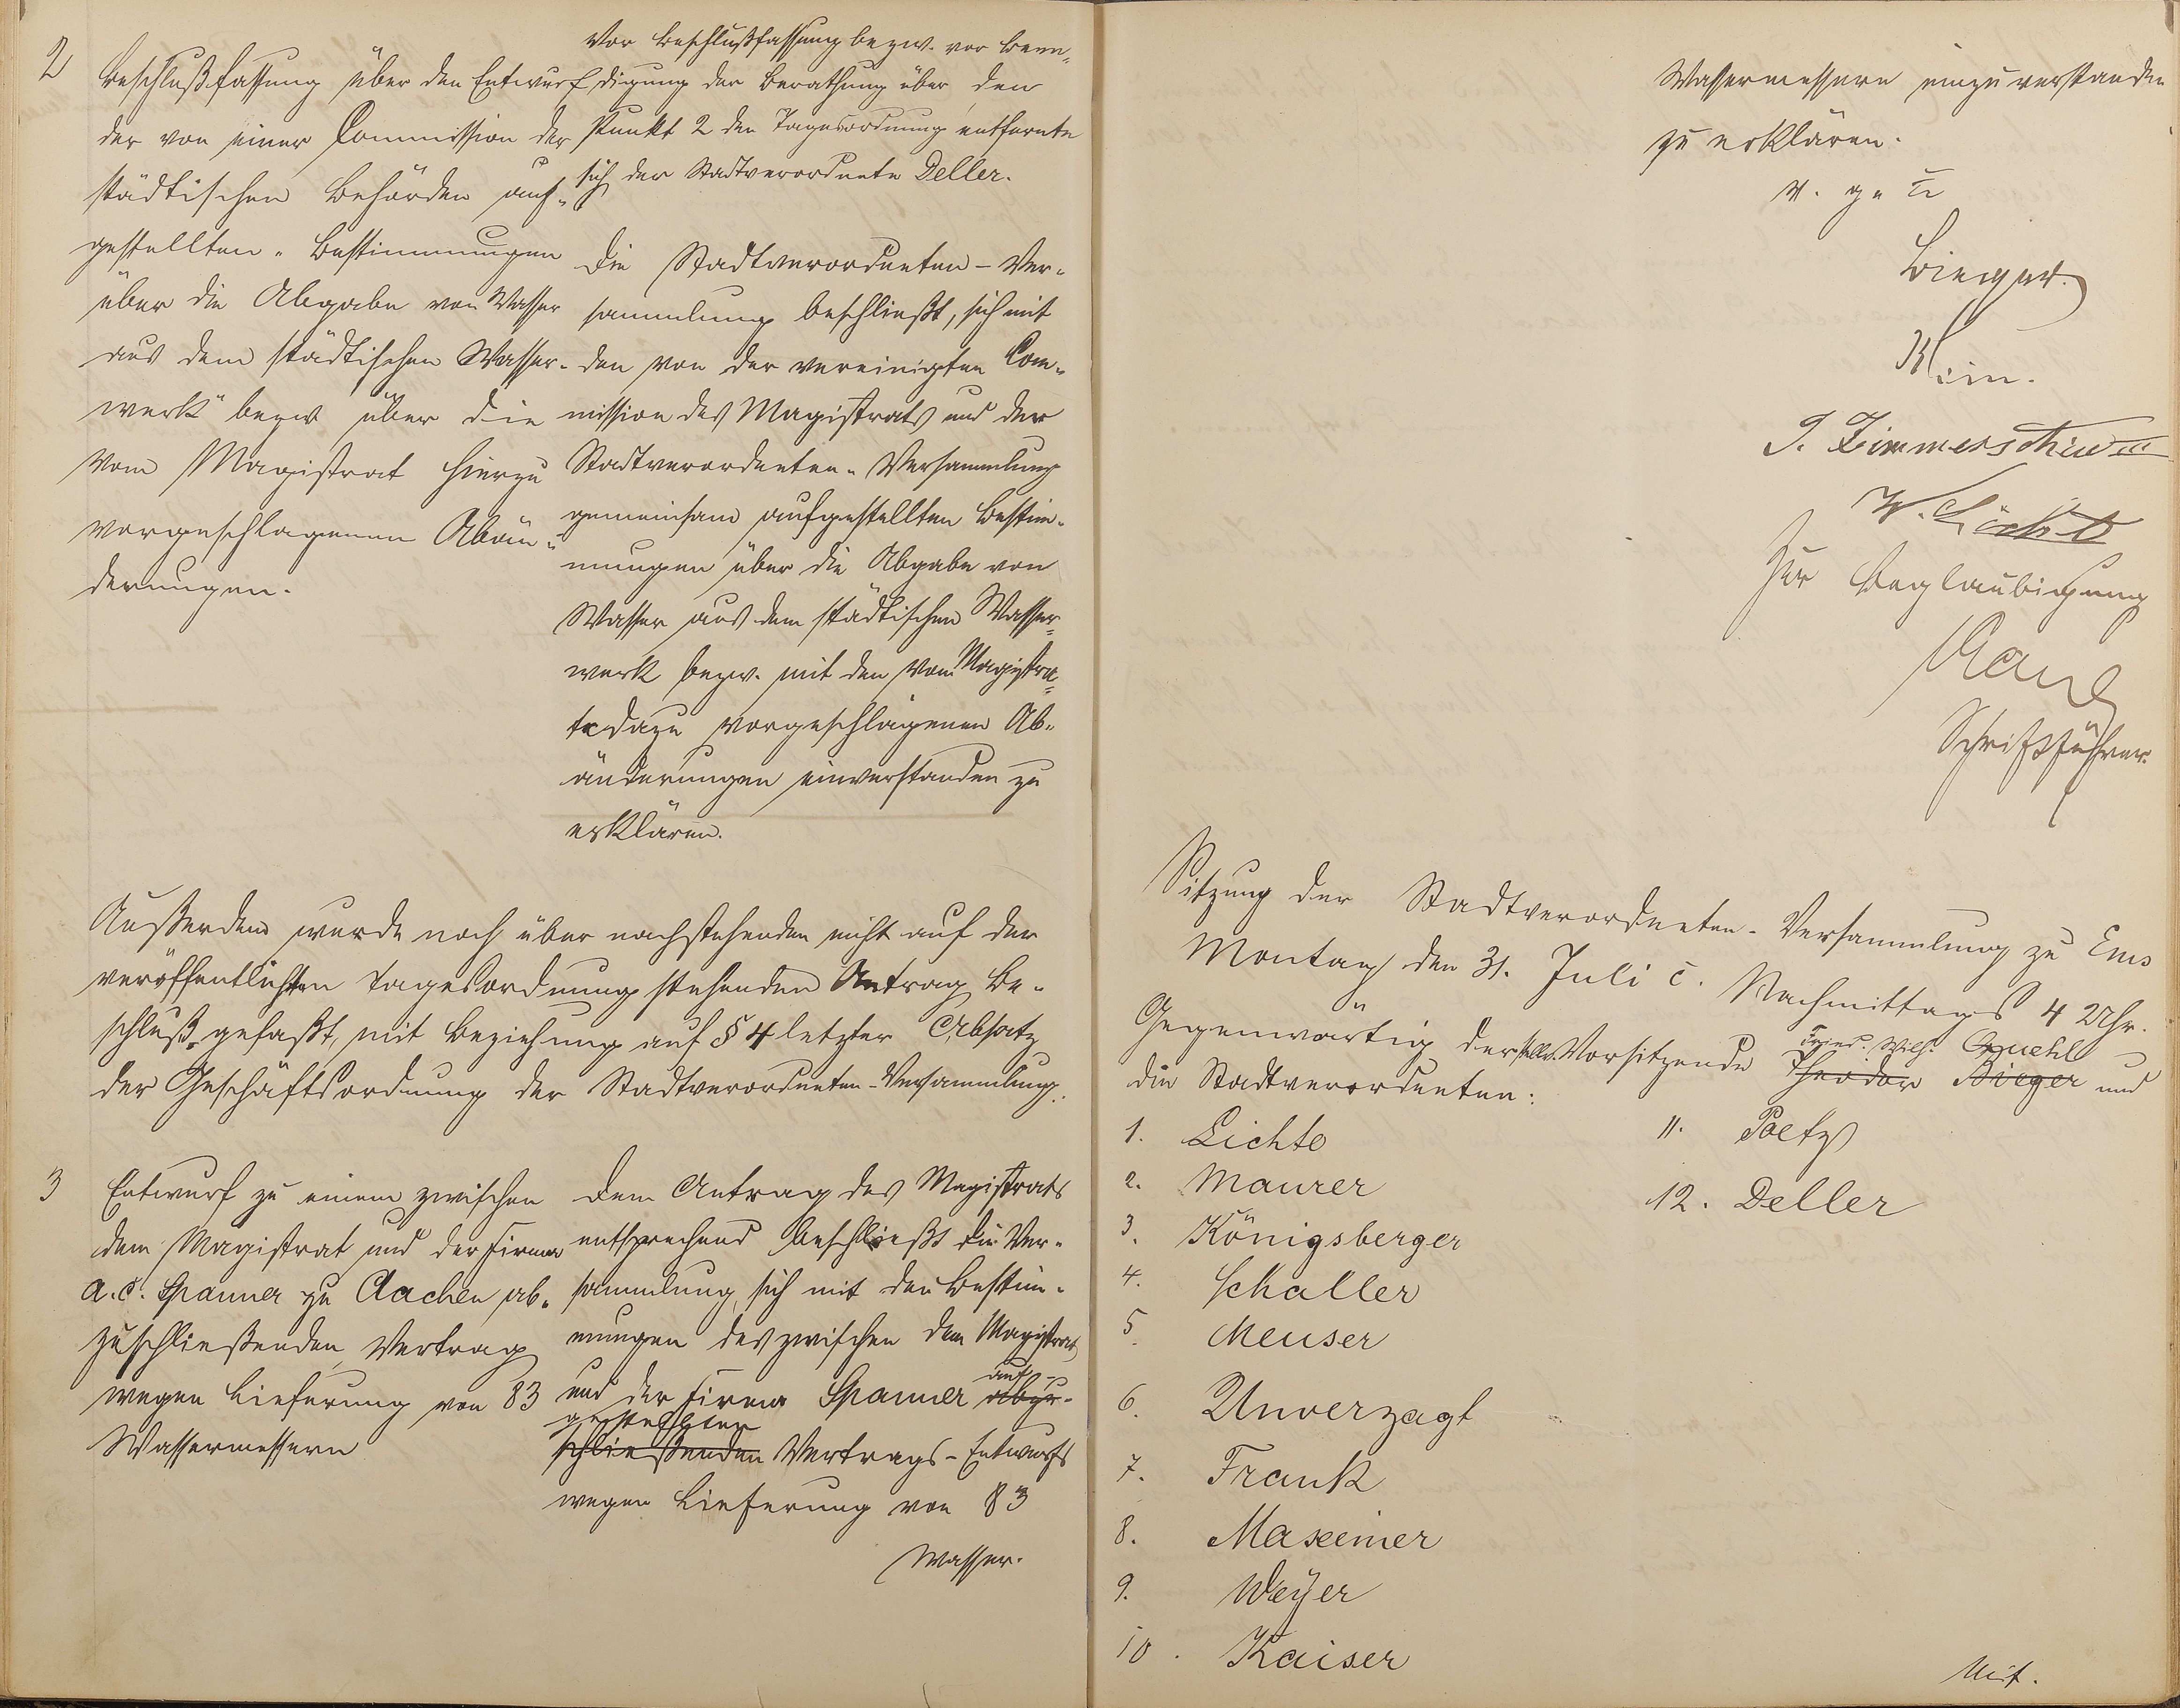 2
Beschlußfassung über den Entwurf
der von einer Commission der
städtischen Behörden auf-
gestellten „Bestimmungen
über die Abgabe von Wasser
aus dem städtischen Wasser-
werk" bezw über die
vom Magistrat hierzu
vorgeschlagenen Abän-
derungen.
Vor Beschlußfassung bezw. vor Been-
digung der Berathung über den
Punkt 2 der Tagesordnung entfernte
sich der Stadtverordnete Deller.
Die Stadtverordneten-Ver-
sammlung beschließt, sich mit
den von der vereinigten Com-
mission des Magistrats und der
Stadtverordneten-Versammlung
gemeinsam aufgestellten Bestim-
mungen über die Abgabe von
Wasser aus dem städtischen Wasser-
werk bezw. mit den vom Magistra-
te dazu vorgeschlagenen Ab-
änderungen einverstanden zu
erklären.
Außerdem wurde noch über nachstehenden nicht auf der
veröffentlichten Tagesordnung stehenden Antrag Be-
schluß gefaßt, mit Beziehung auf § 4 letzter Absatz
der Geschäftsordnung der Stadtverordneten-Versammlung.
3
Entwurf zu einem zwischen
dem Magistrat und der Firma
A. C. Spanner zu Aachen ab-
zuschließenden Vertrag
wegen Lieferung von 83
Wassermessern
Dem Antrag des Magistrats
entsprechend beschließt die Ver-
sammlung, sich mit den Bestim-
mungen des zwischen dem Magistrat
und der Firma Spanner abzu-
auf
gestellten
schließenden Vertrags-Entwurfs
wegen Lieferung von 83
Wasser-
Wassermessern einzuverstanden
zu erklären.
v. g. u
Bieger.
Klein.
J. Zimmerschied III
W. Licht
Zur Beglaubigung
Schriftführer.
Sitzung der Stadtverordneten-Versammlung zu Ems
Montag den 31. Juli c. Nachmittags 4 Uhr.
Gegenwärtig der stellv. Vorsitzende Theodor Bieger und
Fried. Wilh.
die Stadtverordneten:
1. Lichte
2. Maurer
3. Königsberger
4. Schaller
5. Meuser
6. Unverzagt
7. Frank
8. Maxeiner
9. Weyer
10. Kaiser
11. Poetz
12. Deller
Mit-